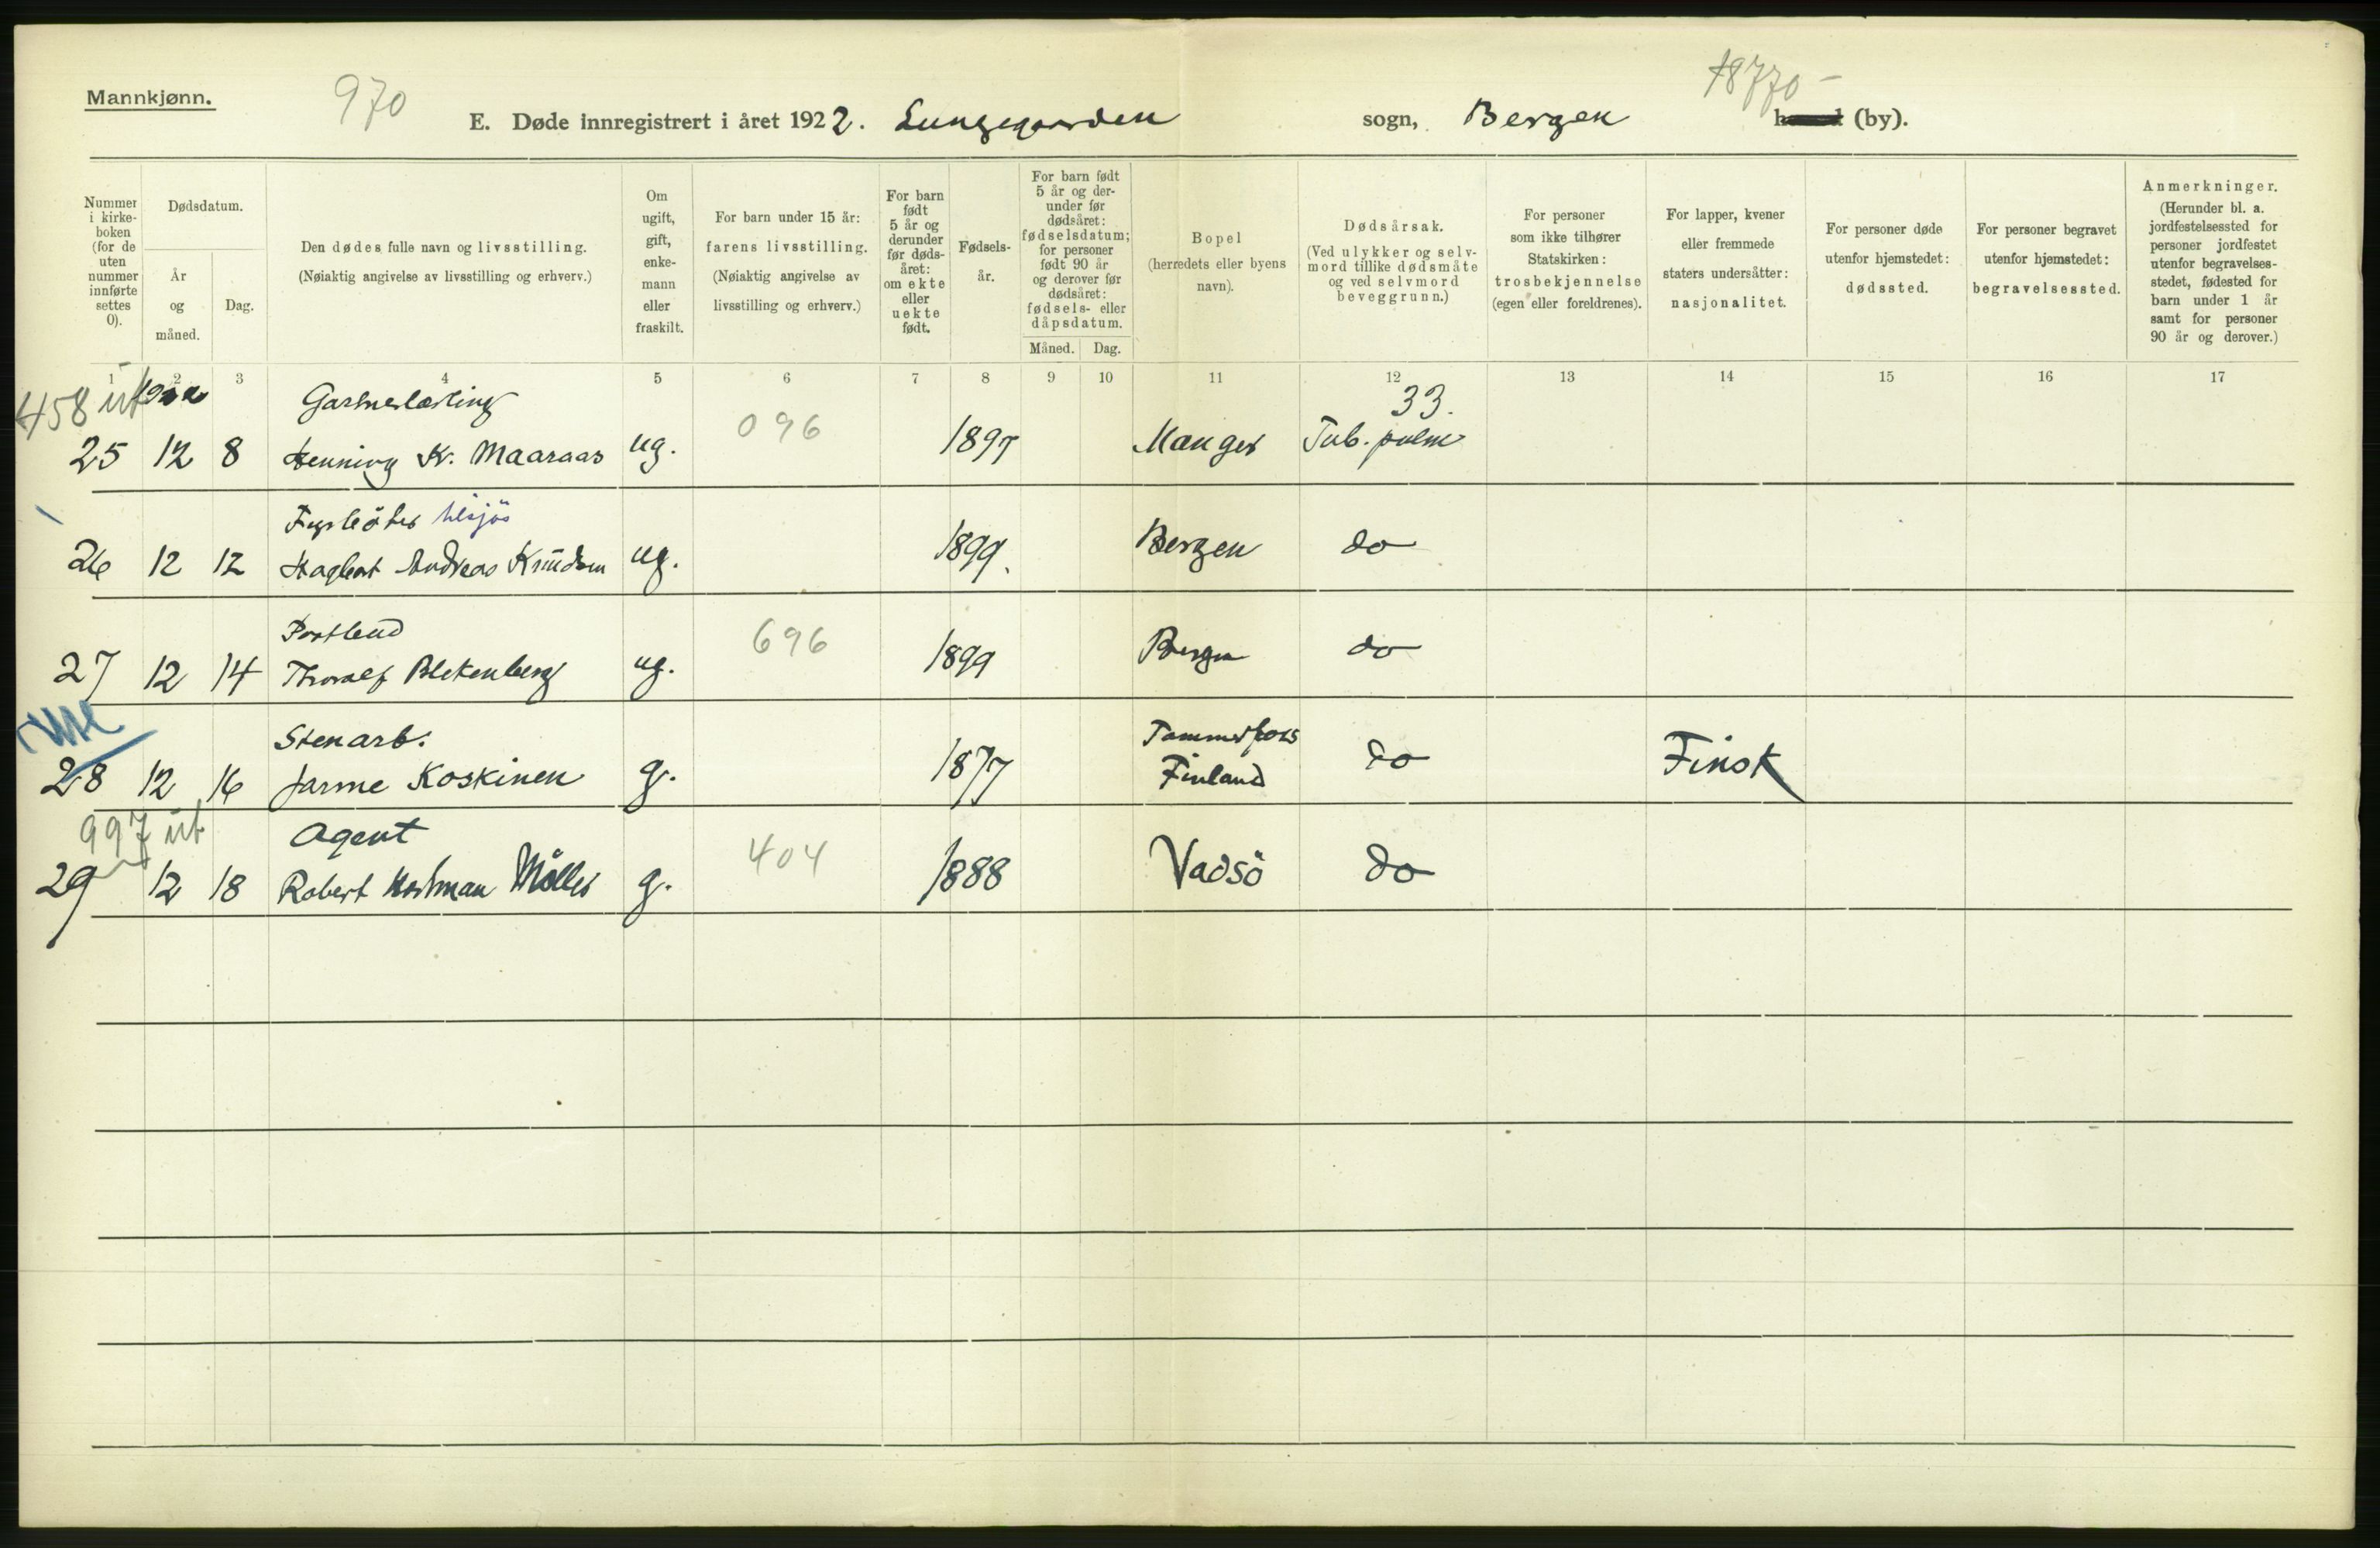 Mannkjønn.
970
18770 –
E. Døde innregistrert i året 1922. Lungegaarden sogn, Bergen (by).
Nummer i kirke- boken (for de uten nummer innførte settes 0).
Dødsdatum.
År og måned.
Dag.
Den dødes fulle navn og livsstilling.
(Nøiaktig angivelse av livsstilling og erhverv.)
Om ugift, gift, enke- mann eller fraskilt.
For barn under 15 år:
farens livsstilling.
(Nøiaktig angivelse av livsstilling og erhverv.)
For barn født 5 år og derunder før døds- året: om ekte eller uekte født.
Fødsels- år.
For barn født 5 år og der- under før dødsåret: fødselsdatum; for personer født 90 år og derover før dødsåret: fødsels- eller dåpsdatum.
Måned. Dag.
Bopel (herredets eller byens navn).
Dødsårsak.
(Ved ulykker og selv- mord tillike dødsmåte og ved selvmord beveggrunn.)
For personer som ikke tilhører Statskirken: trosbekjennelse (egen eller foreldrenes).
For lapper, kvener eller fremmede staters undersåtter: nasjonalitet.
For personer døde utenfor hjemstedet: dødssted.
For personer begravet utenfor hjemstedet: begravelsessted.
Anmerkninger.
(Herunder bl. a. jordfestelsessted for personer jordfestet utenfor begravelses- stedet, fødested for barn under 1 år samt for personer 90 år og derover.)
1 2 3 4 5 6 7 8 9 10 11 12 13 14 15 16 17
458 ut Gartnerlærling 096 33.
25 12 8 Henning K. Maaraas ug. 1897 Manger Tub. pulm
Fyrböter tilsjös
26 12 12 Hagbart Andreas Knudsen ug. 1899. Bergen do
Postbud 696
27 12 14 Thoralf Blekenberg ug. 1899 Bergen do
Stenarb. Tammerfors
28 12 16 Jarme Koskinen g. 1877 Finland do Finsk
997 ut Agent 404
29 12 18 Robert Møller g. 1888 Vadsö do